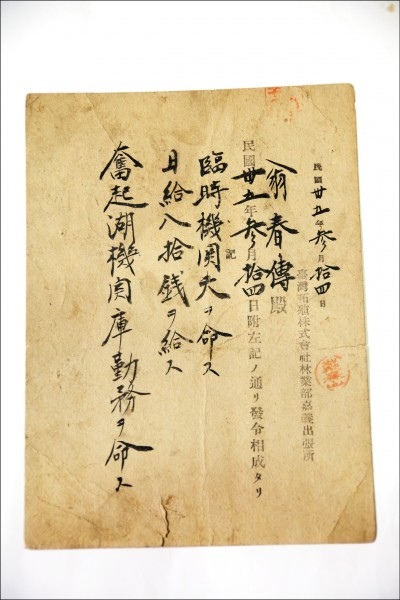 民國廿五年參月拾四日
臺灣拓殖株式會社林業部嘉義出張所
翁春傳殿
民國廿五年參月拾四日附左記ノ通リ發令相成タリ
記
臨時機関夫ヲ命ス
日給八拾銭ヲ給ス
奮起湖機関庫勤務ヲ命ス